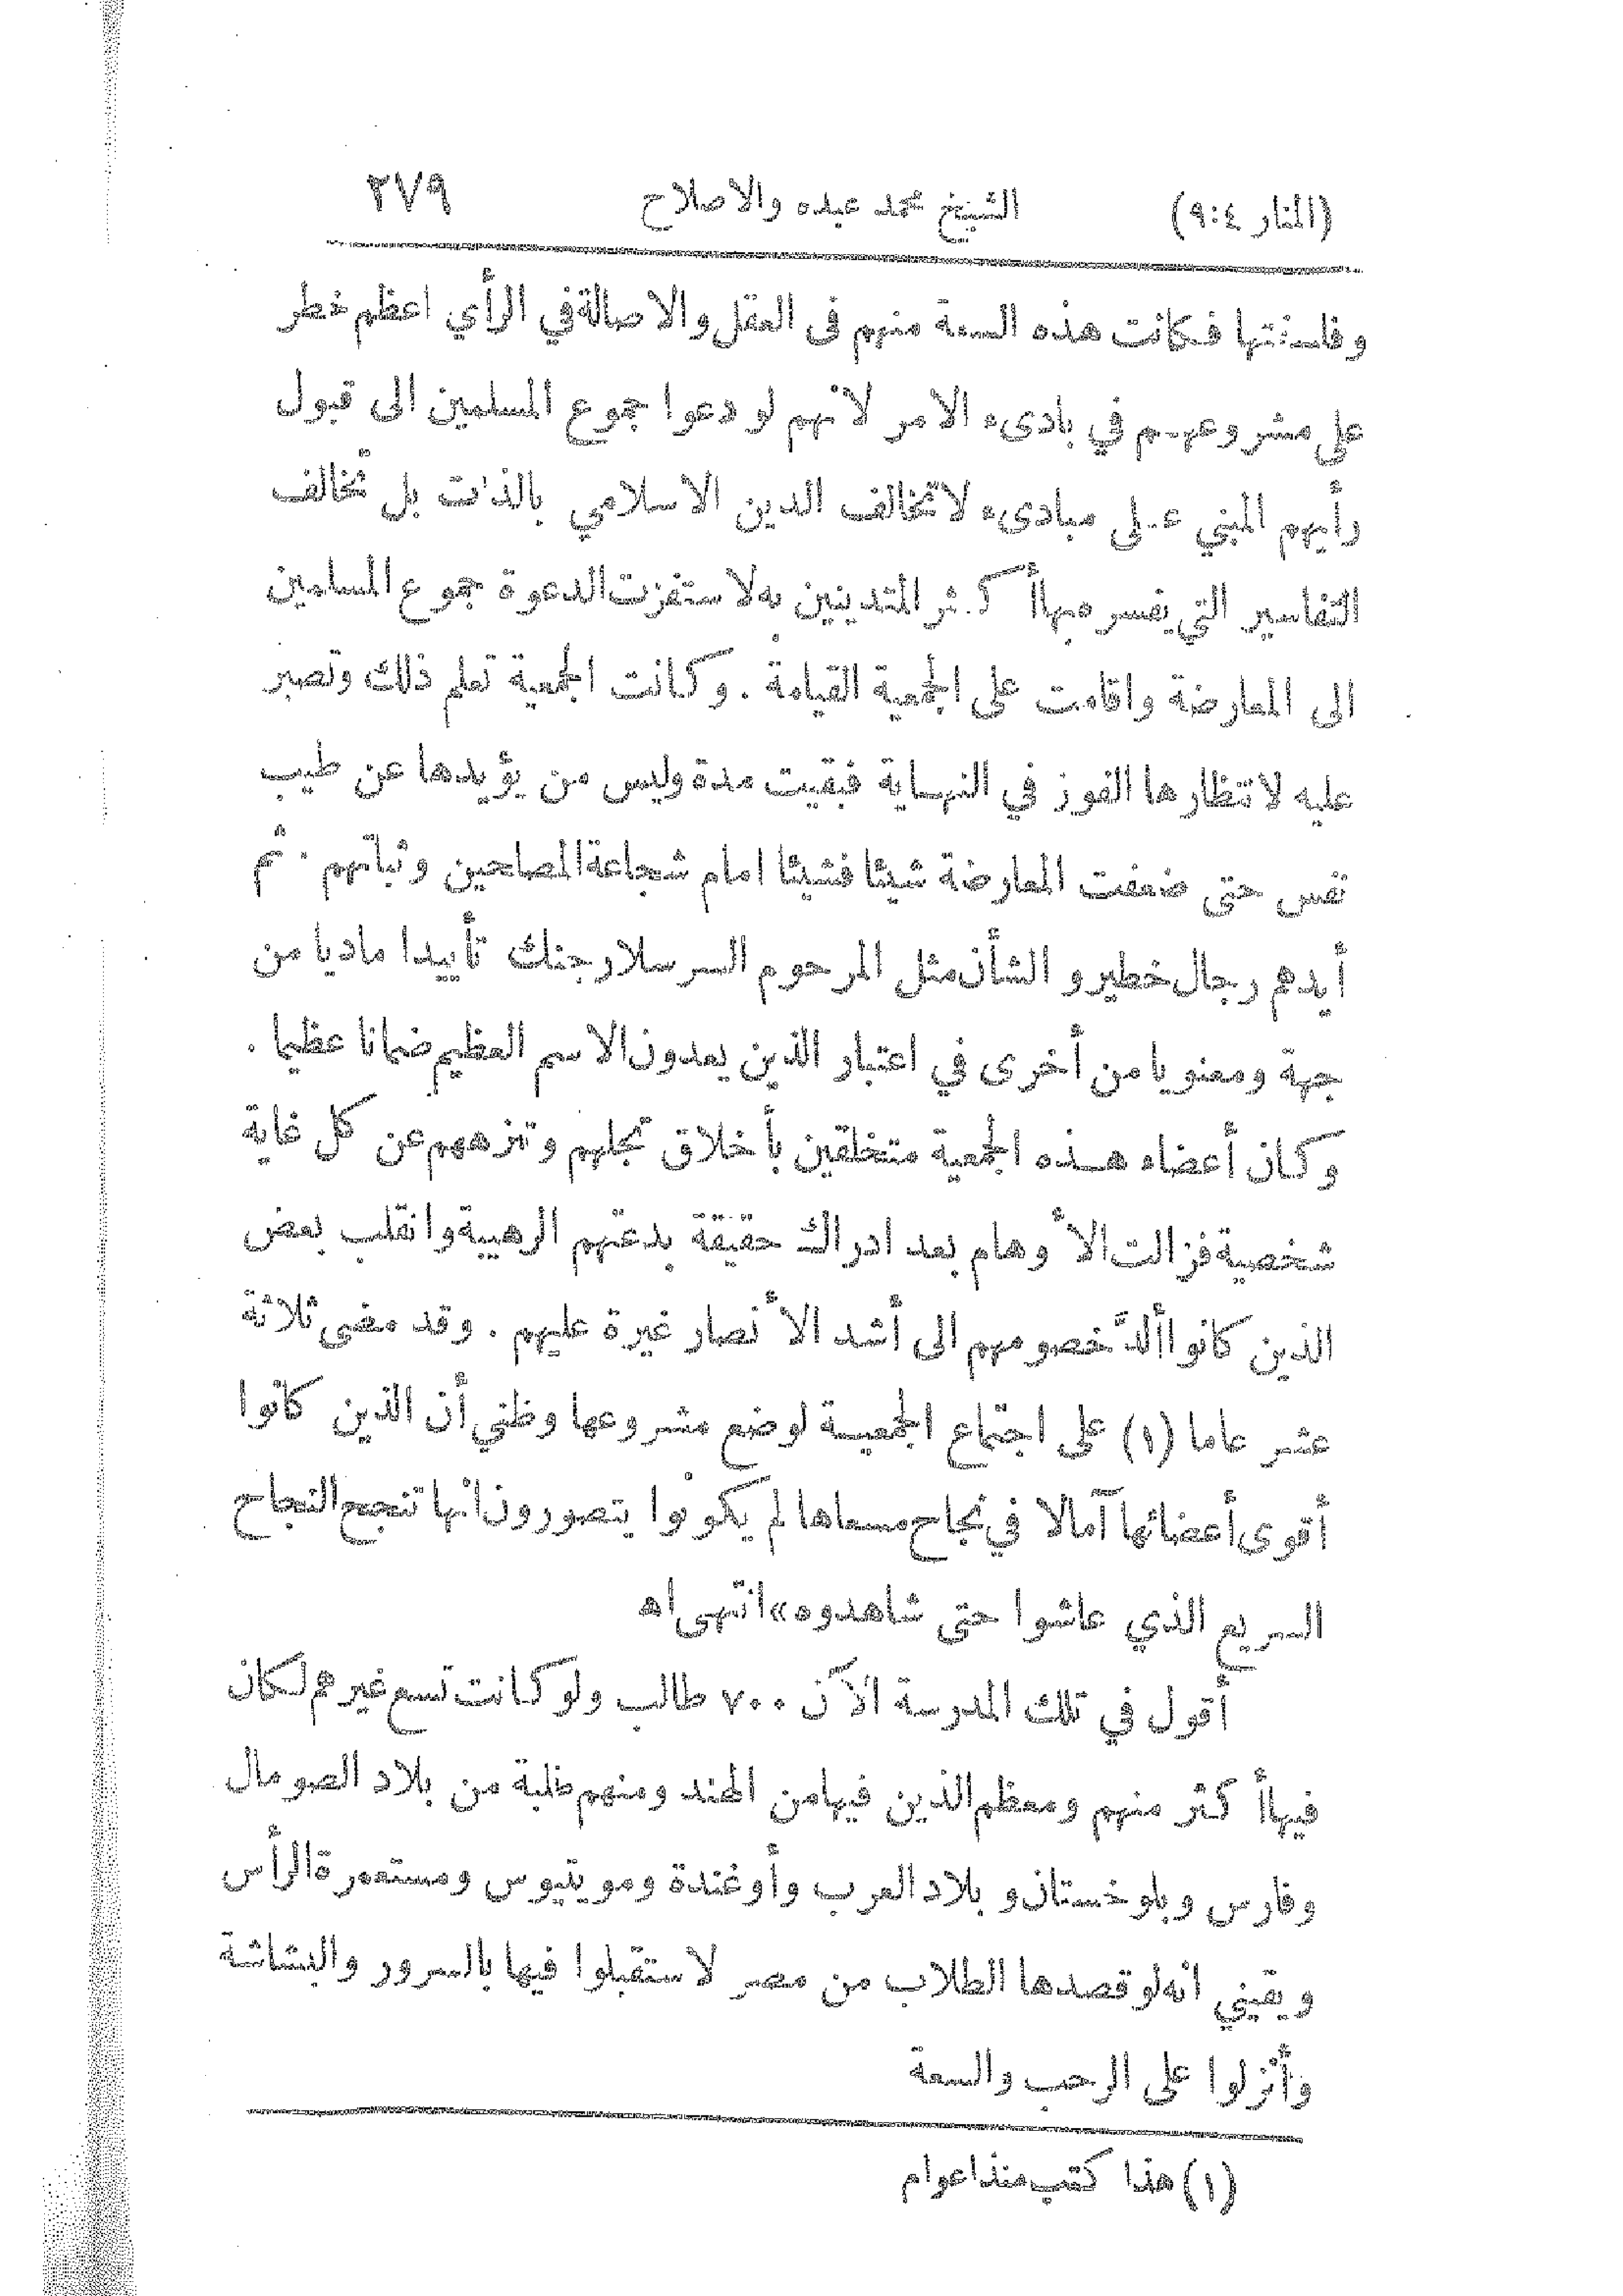 (المنار ٩:٤) الشيخ محمد عبده والاصلاح ٣٧٩
وفلسفتها فكانت هذه السعة منهم فى العقل والاصالة في الرأي اعظم خطر
على مشروعهم في بادىء الامر لانهم لو دعوا جموع المسلمين الى قبول
رأيهم المبني على مبادىء لا تخالف الدين الاسلامي بالذات بل تخالف
التفاسير التي يفسره بها أكثر المتدينين به لاستفزت الدعوة جموع المسلمين
الى المعارضة واقامت على الجمعية القيامة . وكانت الجمعية تعلم ذلك وتصبر
عليه لانتظارها الفوز في النهاية فبقيت مدة وليس من يؤيدها عن طيب
نفس حتى ضعفت المعارضة شيئا فشيئا امام شجاعة المصلحين وثباتهم . ثم
أيدهم رجال خطيرو الشأن مثل المرحوم السر سلار جنك تأييدا ماديا من
جهة ومعنويا من أخرى في اعتبار الذين يعدون الاسم العظيم ضمانا عظيما .
وكان أعضاء هذه الجمعية متخلقين بأخلاق تجلهم وتنزههم عن كل غاية
شخصية فزالت الأوهام بعد ادراك حقيقة بدعتهم الرهيبة وانقلب بعض
الذين كانوا ألدَّ خصومهم الى أشد الأنصار غيرة عليهم . وقد مضى ثلاثة
عشر عاما (١) على اجتماع الجمعية لوضع مشروعها وظني أن الذين كانوا
أقوى أعضائها آمالا في نجاح مسعاها لم يكونوا يتصورون انها تنجح النجاح
السريع الذي عاشوا حتى شاهدوه» انتهى اه
أقول في تلك المدرسة الآن ٧٠٠ طالب ولو كانت تسع غيرهم لكان
فيها أكثر منهم ومعظم الذين فيها من الهند ومنهم طلبة من بلاد الصومال
وفارس وبلوخستان وبلاد العرب وأوغندة ومويتيوس ومستعمرة الرأس
ويقيني انه لو قصدها الطلاب من مصر لاستقبلوا فيها بالسرور والبشاشة
وأنزلوا على الرحب والسعة
(١) هذا كتب منذ اعوام